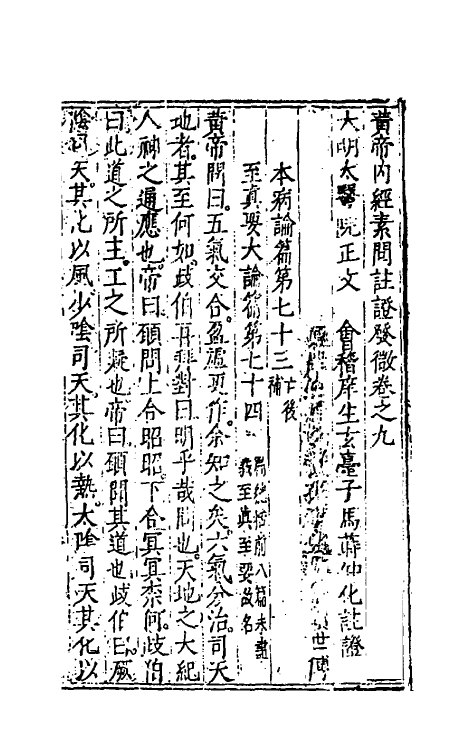 黃帝內經素問註證發微卷之九
大明太醫院正文　會稽庠生玄臺子馬蒔仲化註證
本病論篇第七十三亡後補
至真要大論篇第七十四
黃帝問曰五氣交合盈虛更作余知之矣六氣分治司天
地者其至何如歧伯再拜對曰明乎哉問也天地之大紀
人神之通應也帝曰願聞上合昭昭下合冥冥柰何歧伯
曰此道之所主工之所疑也帝曰願聞其道也歧伯曰厥
陰司天其化以風少陰司天其化以熱太陰司天其化以